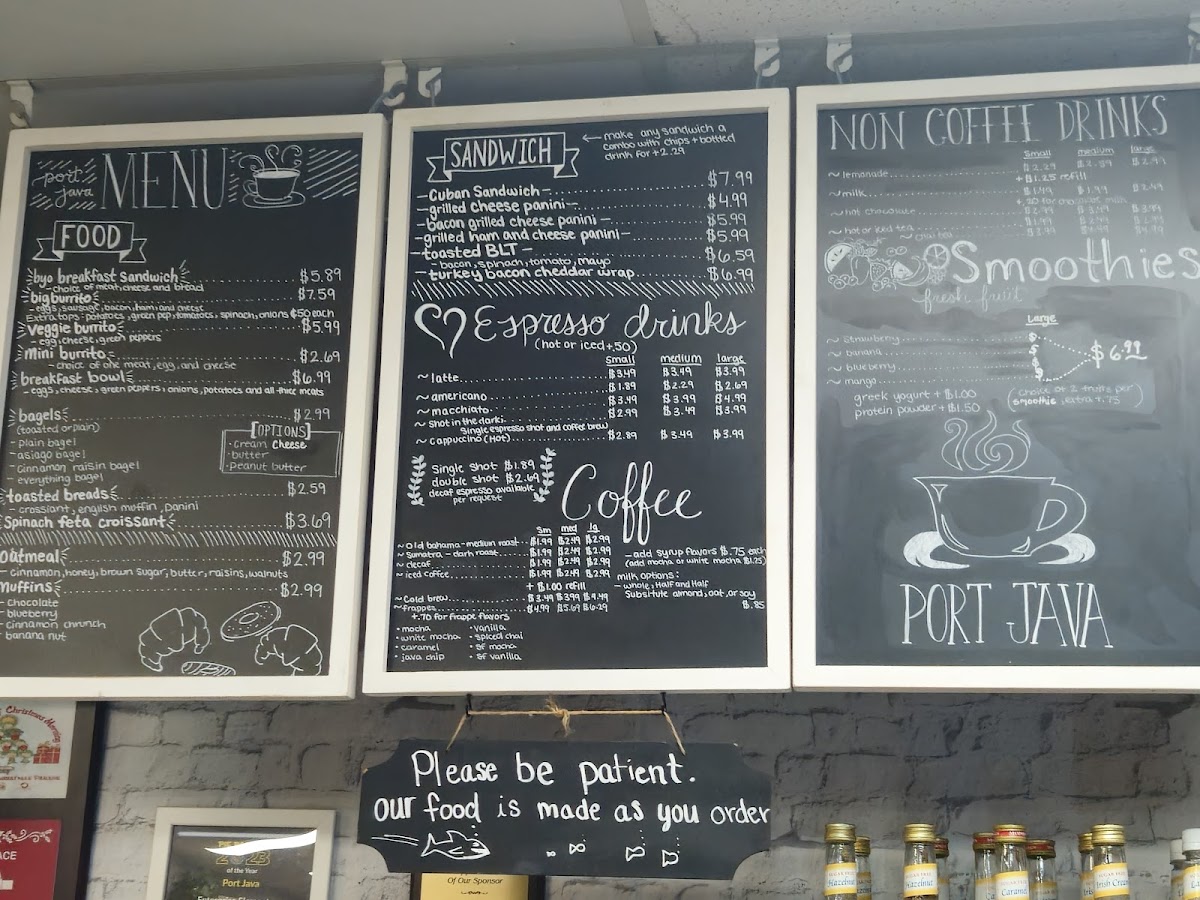 port java MENU
FOOD
byo breakfast sandwich $5.89
- choice of meat, cheese and bread
big burrito $7.59
- eggs, sausage, bacon, ham, and cheese
Extra tops- potatoes, green pep, tomatoes, spinach, onions ¢50 each
veggie burrito $5.99
- egg, cheese, green peppers
Mini burrito $2.69
- choice of one meat, egg, and cheese
breakfast bowl $6.99
- eggs, cheese, green peppers, onions, potatoes and all three meats
bagels $2.99
(toasted or plain)
- plain bagel
- asiago bagel
- cinnamon raisin bagel
- everything bagel
OPTIONS
· cream cheese
· butter
· peanut butter
toasted breads $2.59
- crossiant, english muffin, panini
Spinach feta croissant $3.69
Oatmeal $2.99
- cinnamon, honey, brown sugar, butter, raisins, walnuts
Muffins $2.99
- chocolate
- blueberry
- cinnamon chrunch
- banana nut
SANDWICH
make any sandwich a
combo with chips + bottled
drink for +2.29
- Cuban Sandwich - $7.99
- grilled cheese panini - $4.99
- bacon grilled cheese panini - $5.99
- grilled ham and cheese panini - $5.99
- toasted BLT - $6.59
- bacon, spinach, tomato, mayo
- turkey bacon cheddar wrap $6.99
Espresso drinks
(hot or iced +.50)
small medium large
~ latte $3.49 $3.49 $3.99
~ americano $1.89 $2.29 $2.69
~ macchiato $3.49 $3.99 $4.99
~ shot in the dark $2.99 $3.49 $3.99
single espresso shot and coffee brew
~ Cappuccino (HOT) $2.89 $3.49 $3.99
Single shot $1.89
double shot $2.69
decaf espresso available
per request
Coffee
Sm med lg
~ Old bahama - medium roast $1.99 $2.49 $2.99
~ Sumatra - dark roast $1.99 $2.49 $2.99
~ decaf $1.99 $2.49 $2.99
~ iced coffee $1.99 $2.49 $2.99
+ $1.00 refill
~ Cold brew $3.49 $3.99 $4.49
~ frappes $4.99 $5.69 $6.29
+.70 for frappe flavors
· mocha · vanilla
· white mocha · spiced chai
· caramel · sf mocha
· java chip · sf vanilla
- add syrup flavors $.75 each
(add mocha or white mocha $1.25)
milk options:
- whole, Half and Half
Subsitute almond, oat, or soy
$.85
NON COFFEE DRINKS
small medium large
~ lemonade $2.29 $2.89 $2.99
+ $1.25 refill
~ milk $1.49 $1.99 $2.49
+ .20 for chocolate milk
~ hot chocolate $2.99 $3.49 $3.99
~ hot or iced tea
~ chai tea
Smoothies
fresh fruit
Large
~ strawberry $
~ banana $
~ blueberry $
~ mango $
$6.99
greek yogurt + $1.00
protein powder + $1.50
(choice of 2 fruits per
smoothie, extra +.75)
PORT JAVA
Please be patient.
our food is made as you order
Christmas
2023
of the Year
Port Java
Of Our Sponsor
Hazelnut
Hazelnut
Caramel
Irish Cream